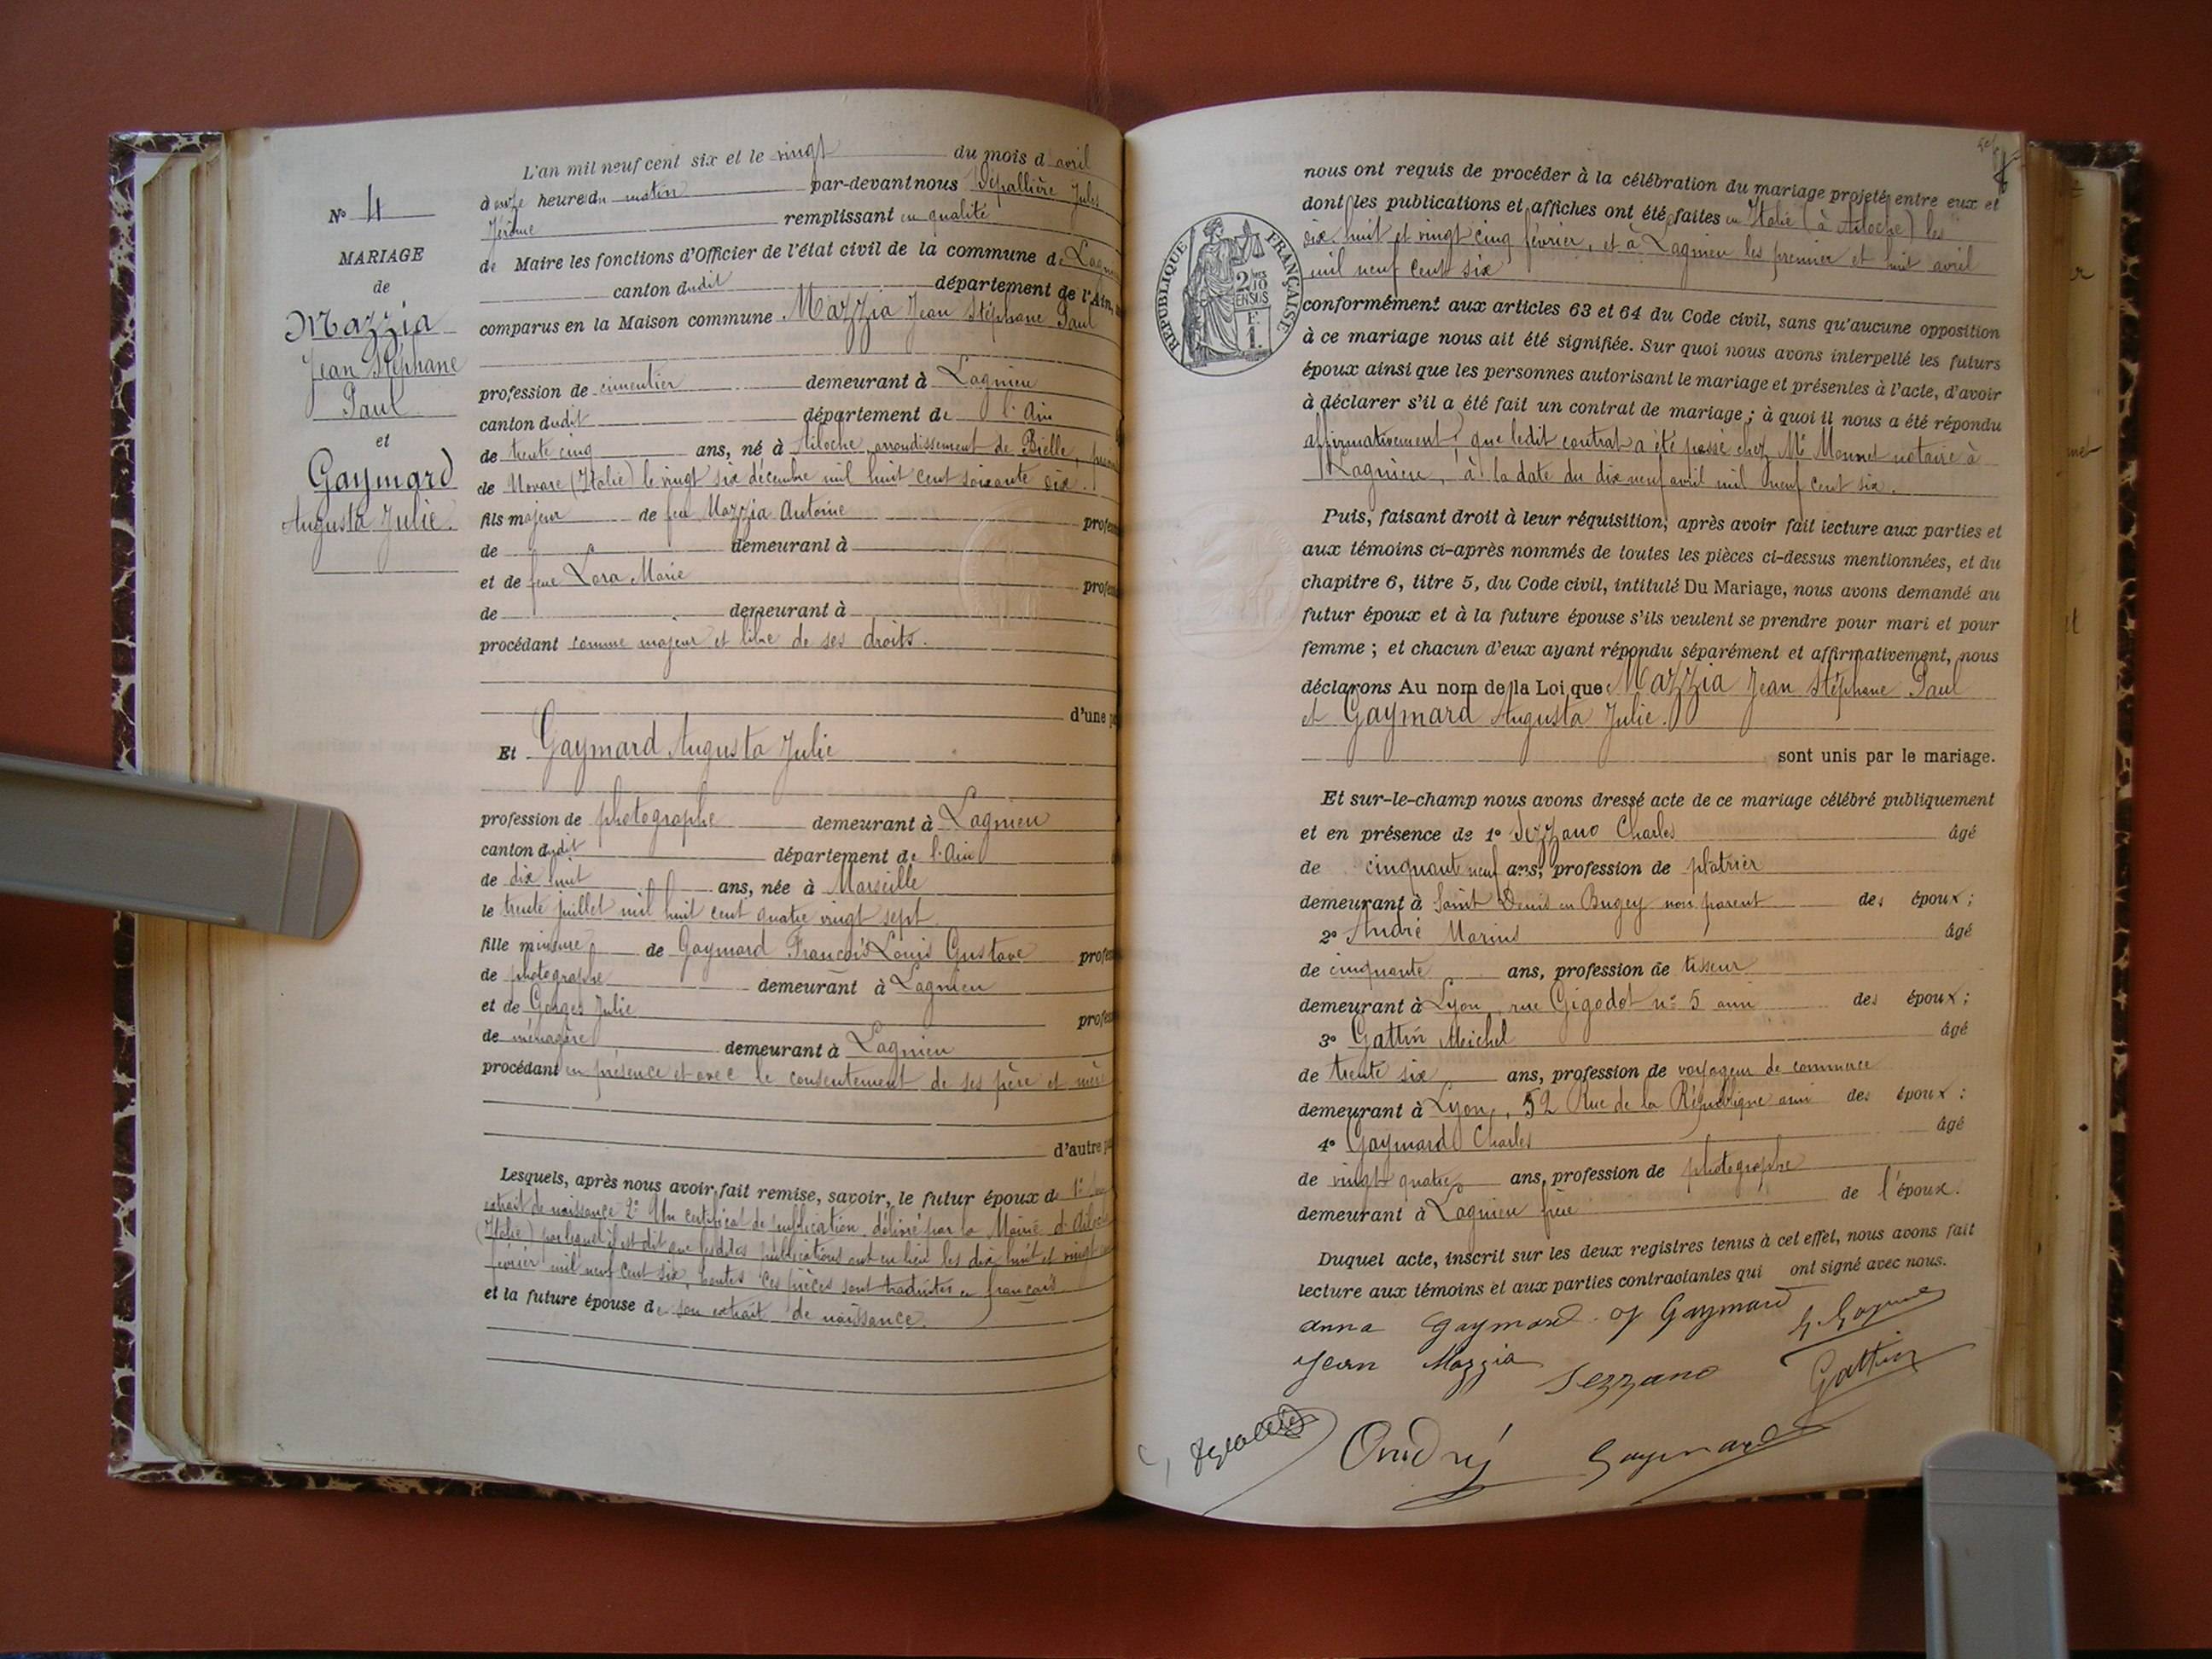 N° 4
MARIAGE
de
Mazzia
Jean Stéphane
Paul
et
Gaymard
Augusta Julie.
L'an mil neuf cent six et le vingt du mois d avril
à onze heure du matin par-devant nous Dépallière Jules
Jérôme remplissant en qualité
de Maire les fonctions d'Officier de l'état civil de la commune de
canton dudit département de l'Ain,
comparus en la Maison commune Mazzia Jean Stéphane Paul
profession de cimentier demeurant à Lagnieu
canton dudit département de l'Ain
de trente cinq ans, né à Ailoche arrondissement de Bielle,
de Novare (Italie) le vingt six décembre mil huit cent soixante dix.
fils majeur de feu Mazzia Antoine
de demeurant à
et de feue Lora Marie
de demeurant à
procédant comme majeur et libre de ses droits.
d'une
Et Gaymard Augusta Julie
profession de photographe demeurant à Lagnieu
canton dudit département de l'Ain
de dix huit ans, née à Marseille
le trente juillet mil huit cent quatre vingt sept
fille mineure de Gaymard François Louis Gustave
de photographe demeurant à Lagnieu
et de Gorges Julie
de ménagère demeurant à Lagnieu
procédant en présence et avec le consentement de ses père et mère
d'autre
Lesquels, après nous avoir fait remise, savoir, le futur époux de 1°
extrait de naissance 2° Un certificat de publication délivré par la Mairie d'Ailoche
(Italie) par lequel il est dit que lesdites publications ont eu lieu les dix huit et vingt
février mil neuf cent six, toutes ces pièces sont traduites en français
et la future épouse de son extrait de naissance.
nous ont requis de procéder à la célébration du mariage projeté entre eux et
dont les publications et affiches ont été faites en Italie (à Ailoche) les
dix huit et vingt cinq février, et à Lagnieu les premier et huit avril
mil neuf cent six
RÉPUBLIQUE FRANÇAISE
2/10
EN SUS
F.
1.
conformément aux articles 63 et 64 du Code civil, sans qu'aucune opposition
à ce mariage nous ait été signifiée. Sur quoi nous avons interpellé les futurs
époux ainsi que les personnes autorisant le mariage et présentes à l'acte, d'avoir
à déclarer s'il a été fait un contrat de mariage ; à quoi il nous a été répondu
affirmativement, que ledit contrat a été passé chez Me Monnet notaire à
Lagnieu, à la date du dix neuf avril mil neuf cent six.
Puis, faisant droit à leur réquisition, après avoir fait lecture aux parties et
aux témoins ci-après nommés de toutes les pièces ci-dessus mentionnées, et du
chapitre 6, titre 5, du Code civil, intitulé Du Mariage, nous avons demandé au
futur époux et à la future épouse s'ils veulent se prendre pour mari et pour
femme ; et chacun d'eux ayant répondu séparément et affirmativement, nous
déclarons Au nom de la Loi que Mazzia Jean Stéphane Paul
et Gaymard Augusta Julie.
sont unis par le mariage.
Et sur-le-champ nous avons dressé acte de ce mariage célébré publiquement
et en présence de 1° Sezzano Charles âgé
de cinquante neuf ans, profession de platrier
demeurant à Saint Denis en Bugey non parent des époux ;
2° André Marius âgé
de cinquante ans, profession de tisseur
demeurant à Lyon, rue Gigodot n° 5 ami des époux ;
3° Gattin Michel âgé
de trente six ans, profession de voyageur de commerce
demeurant à Lyon, 52 Rue de la République ami des époux ;
4° Gaymard Charles âgé
de vingt quatre ans, profession de photographe
demeurant à Lagnieu frère de l'épouse.
Duquel acte, inscrit sur les deux registres tenus à cet effet, nous avons fait
lecture aux témoins et aux parties contractantes qui ont signé avec nous.
anna Gaymard Gaymard
Jean Mazzia Sezzano Gattin
André Gaymard